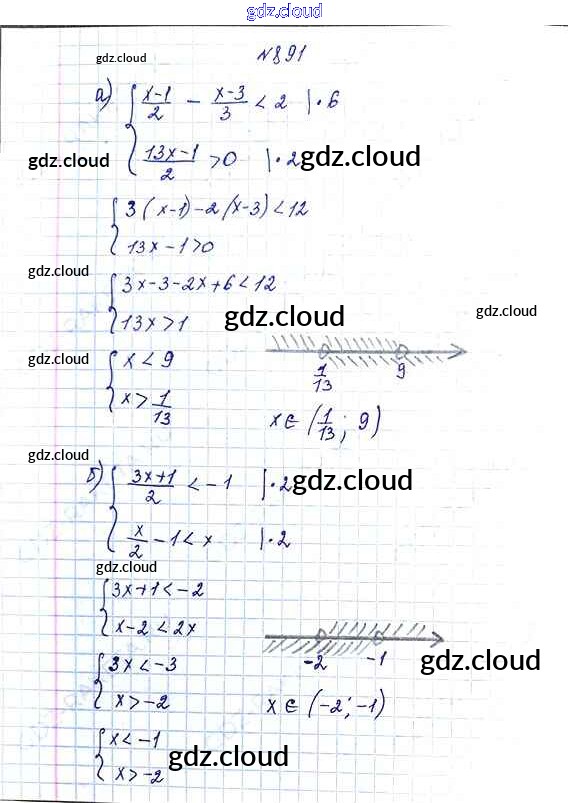 gdz.cloud
gdz.cloud
№891
а) { (x-1)/2 - (x-3)/3 < 2 |·6
gdz.cloud
(13x-1)/2 > 0 |·2
gdz.cloud
{ 3(x-1)-2(x-3)<12
13x-1>0
gdz.cloud
{ 3x-3-2x+6<12
13x>1
gdz.cloud
gdz.cloud
gdz.cloud
{ x<9
x> 1/13
1/13 9
x∈(1/13; 9)
gdz.cloud
б) { (3x+1)/2 < -1 |·2
gdz.cloud
x/2 -1<x |·2
gdz.cloud
{ 3x+1<-2
x-2<2x
-2 -1
gdz.cloud
{ 3x<-3
x>-2
x∈(-2;-1)
{ x<-1
x>-2
gdz.cloud